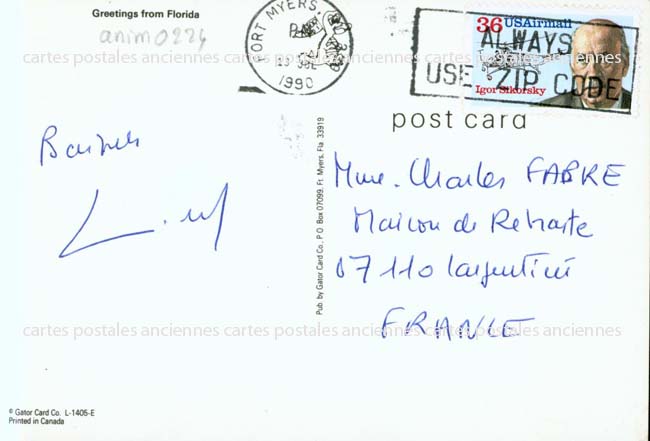 Greetings from Florida
anim0224
FORT MYERS,
PM
1990
36 USAirmail
Igor Sikorsky
ALWAYS
USE ZIP CODE
post card
Baisers
Mme. Charles FABRE
Maison de Retraite
07110 Largentière
FRANCE
Pub. by Gator Card Co., P.O. Box 07099, Ft. Myers, Fla. 33919
cartes postales anciennes cartes postales anciennes cartes postales anciennes
cartes postales anciennes cartes postales anciennes cartes postales anciennes
© Gator Card Co. L-1405-E
Printed in Canada